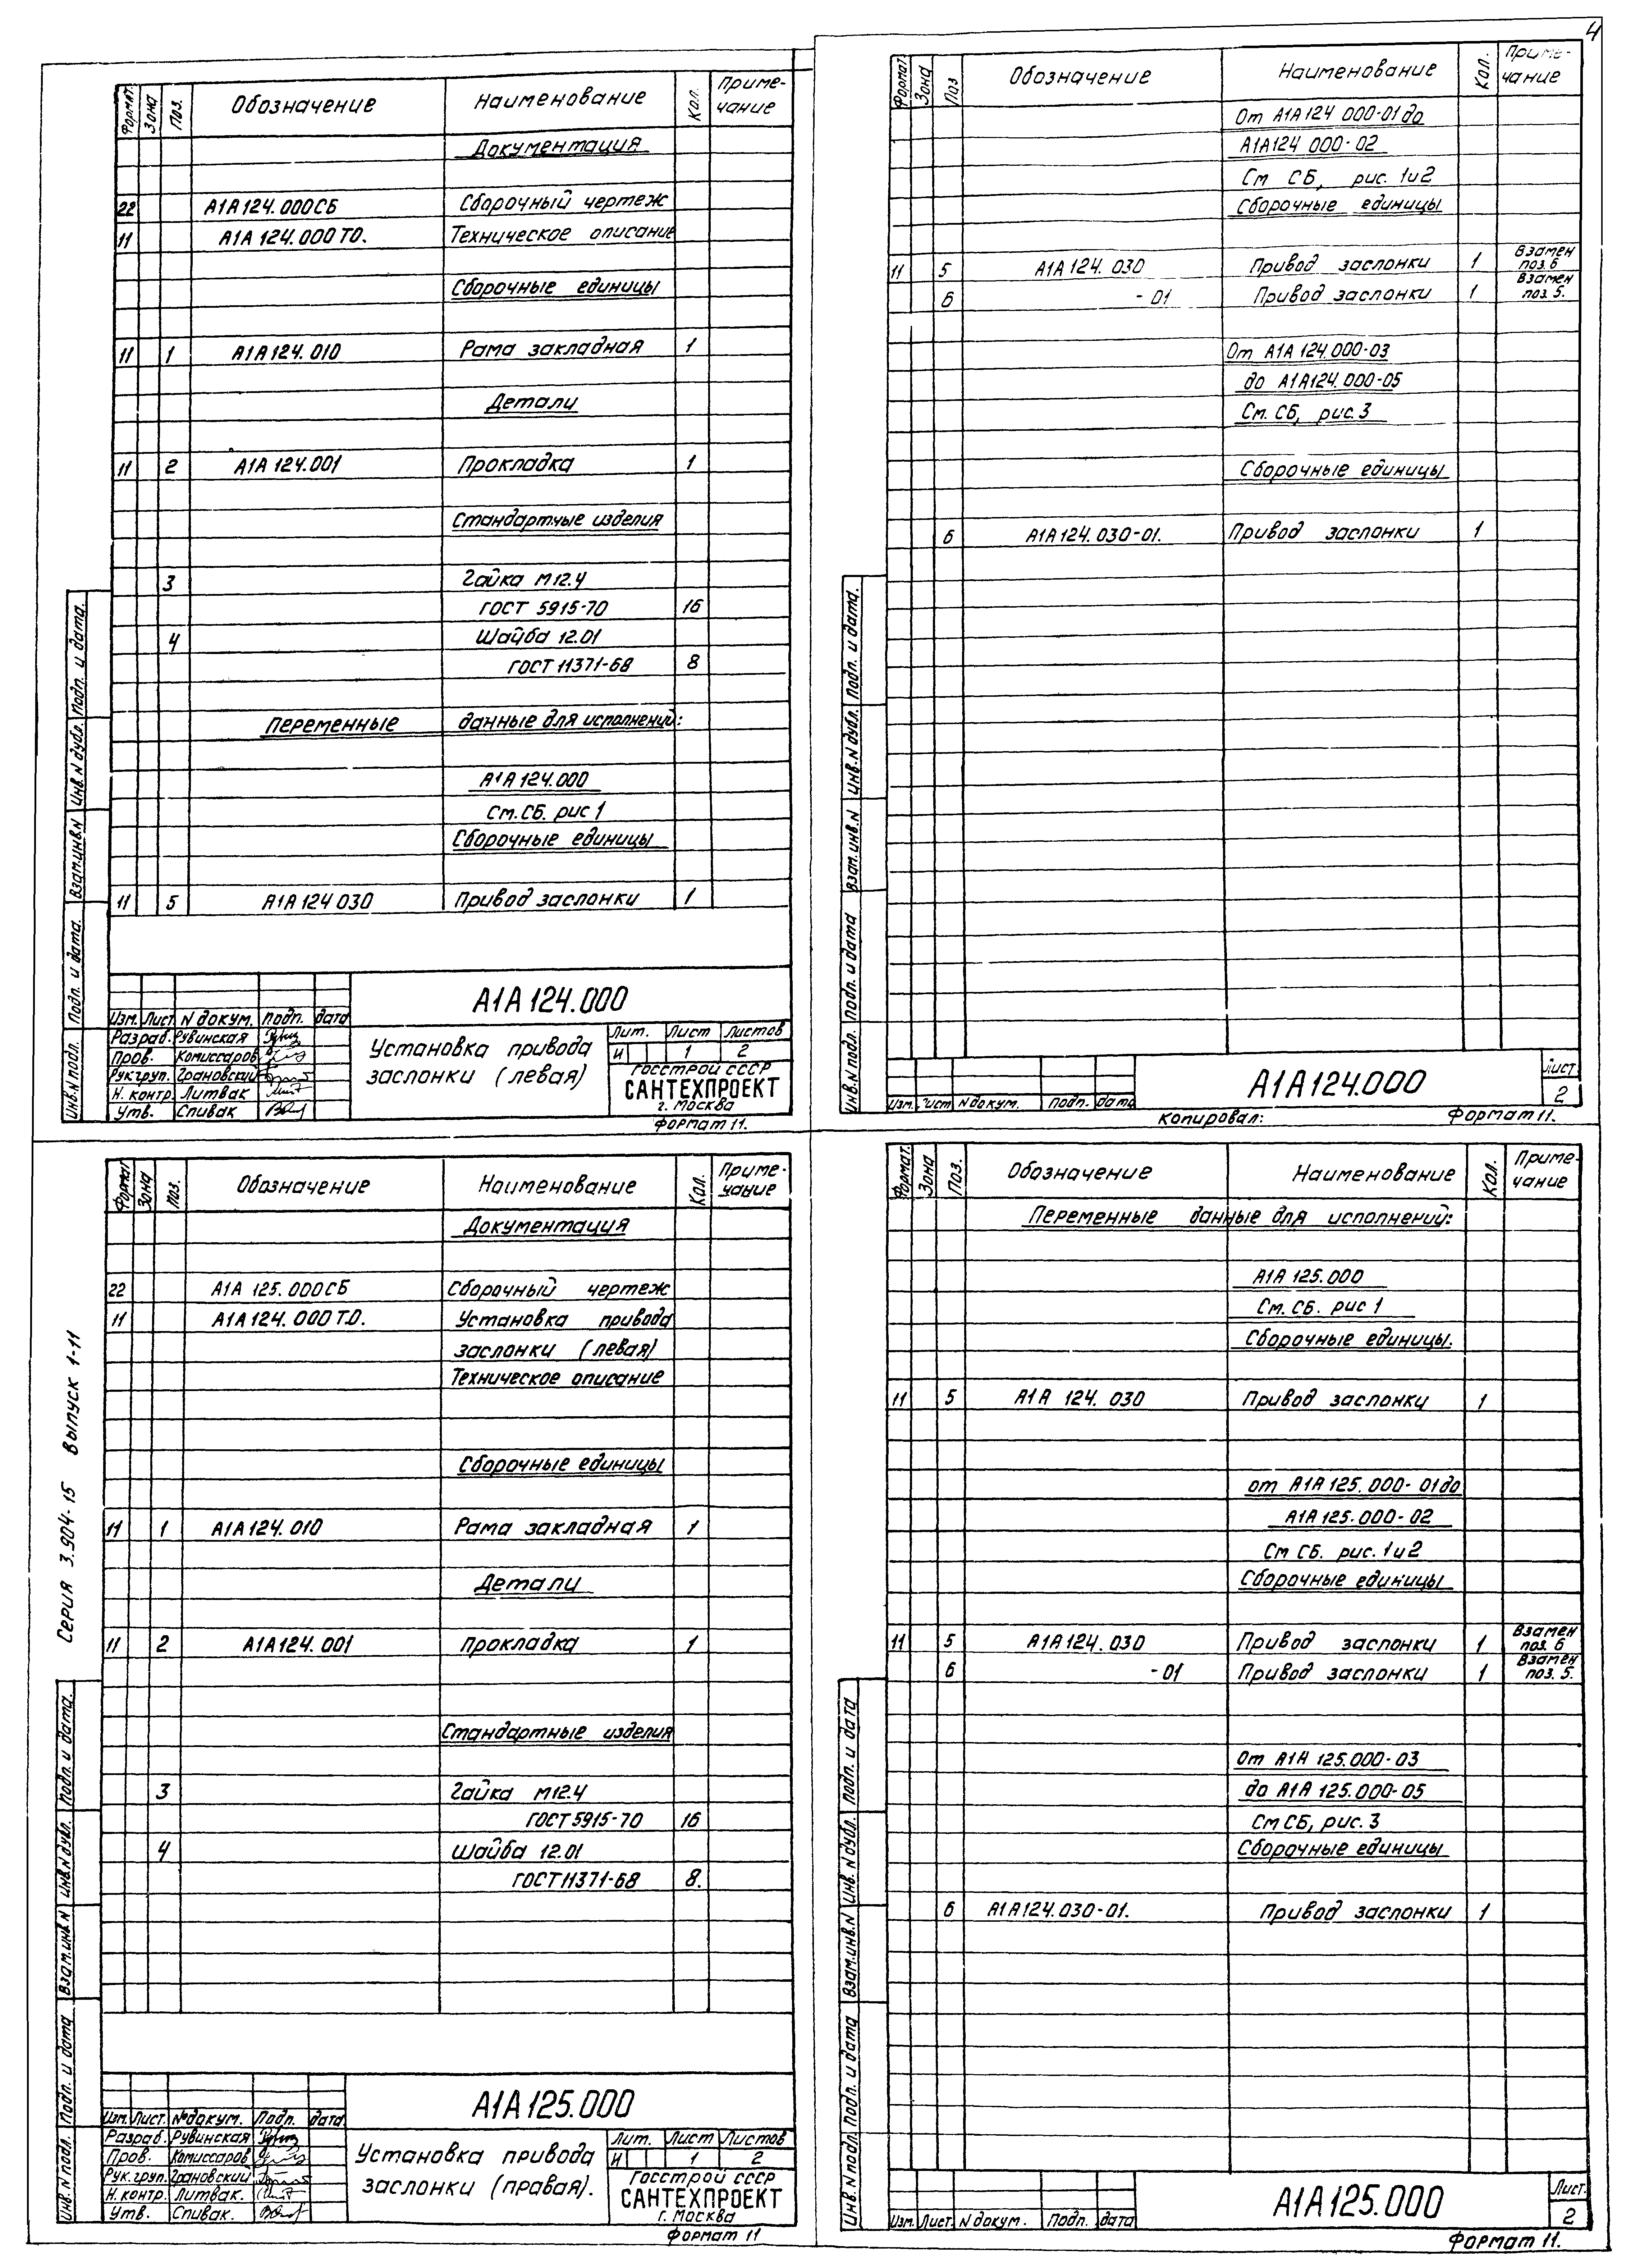 4
Формат. Зона Поз. Обозначение Наименование Кол. Приме-чание
Документация
22 А1А124.000СБ Сборочный чертеж
11 А1А 124.000 ТО. Техническое описание
Сборочные единицы
11 1 А1А124.010 Рама закладная 1
Детали
11 2 А1А 124.001 Прокладка 1
Стандартные изделия
3 Гайка М12.4
ГОСТ 5915-70 16
4 Шайба 12.01
ГОСТ 11371-68 8
Переменные данные для исполнений:
А1А 124.000
См. СБ. рис 1
Сборочные единицы
11 5 А1А 124 030 Привод заслонки 1
А1А 124.000
Изм. Лист N докум. Подп. дата
Разраб. Рувинская
Пров. Комиссаров
Рук.груп. Грановский
Н. контр. Литвак
Утв. Спивак
Установка привода
заслонки (левая)
Лит. Лист Листов
И 1 2
Госстрой СССР
САНТЕХПРОЕКТ
г. Москва
Формат 11.
Инв.N подл. Подп. и дата. Взам.инв.N Инв.N дубл. Подп. и дата.
Формат Зона Поз Обозначение Наименование Кол. Приме-чание
От А1А124 000-01 до
А1А124 000-02
См СБ, рис. 1и2
Сборочные единицы
11 5 А1А 124. 030 Привод заслонки 1 Взамен поз.6
6 -01 Привод заслонки 1 Взамен поз. 5.
От А1А 124.000-03
до А1А124.000-05
См. СБ, рис. 3
Сборочные единицы
6 А1А 124. 030-01. Привод заслонки 1
Изм. Лист N докум. Подп. дата
А1А124.000
Лист
2
Копировал: Формат 11.
Инв.N подл. Подп. и дата Взам.инв.N Инв.N дубл. Подп. и дата.
Серия 3.904-15 Выпуск 1-11
Формат Зона Поз. Обозначение Наименование Кол. Приме-чание
Документация
22 А1А 125.000СБ Сборочный чертеж
11 А1А124.000Т.О. Установка привода
заслонки (левая)
Техническое описание
Сборочные единицы
11 1 А1А124.010 Рама закладная 1
Детали
11 2 А1А124.001 прокладка 1
Стандартные изделия
3 Гайка М12.4
ГОСТ 5915-70 16
4 Шайба 12.01
ГОСТ 11371-68 8.
А1А125.000
Изм. Лист. № докум. Подп. дата
Разраб. Рувинская
Пров. Комиссаров
Рук.груп. Грановский
Н.контр. Литвак.
Утв. Спивак.
Установка привода
заслонки (правая).
Лит. Лист Листов
И 1 2
Госстрой СССР
САНТЕХПРОЕКТ
г. Москва
Формат 11
Инв. N подл. Подп. и дата Взам.инв.N Инв.N дубл. Подп. и дата.
Формат. Зона Поз. Обозначение Наименование Кол. Приме-чание
Переменные данные для исполнений:
А1А 125.000
См. СБ. рис 1
Сборочные единицы.
11 5 А1А 124. 030 Привод заслонки 1
от А1А 125.000-01до
А1А 125.000-02
См СБ. рис. 1и2
Сборочные единицы
11 5 А1А124.030 Привод заслонки 1 Взамен поз. 6
6 -01 Привод заслонки 1 Взамен поз. 5.
От А1А 125.000-03
до А1А 125.000-05
См СБ, рис. 3
Сборочные единицы
6 А1А124.030-01. Привод заслонки 1
Изм. Лист. N докум. Подп. дата
А1А125.000
Лист.
2
Формат 11.
Инв. N подл. Подп. и дата Взам.инв.N Инв. N дубл. Подп. и дата